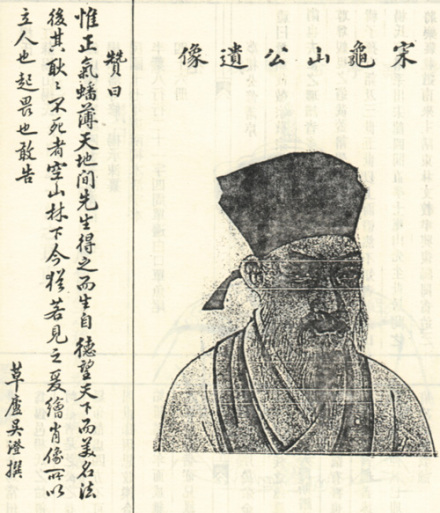 宋龜山公遺像
贊曰
惟正氣蟠薄天地間先生得之而生自德望天下而美名法
後其耿〻不死者空山林下今猶若見之爰繪肖像所以
立人也起畏也敢告
草廬吳澄撰